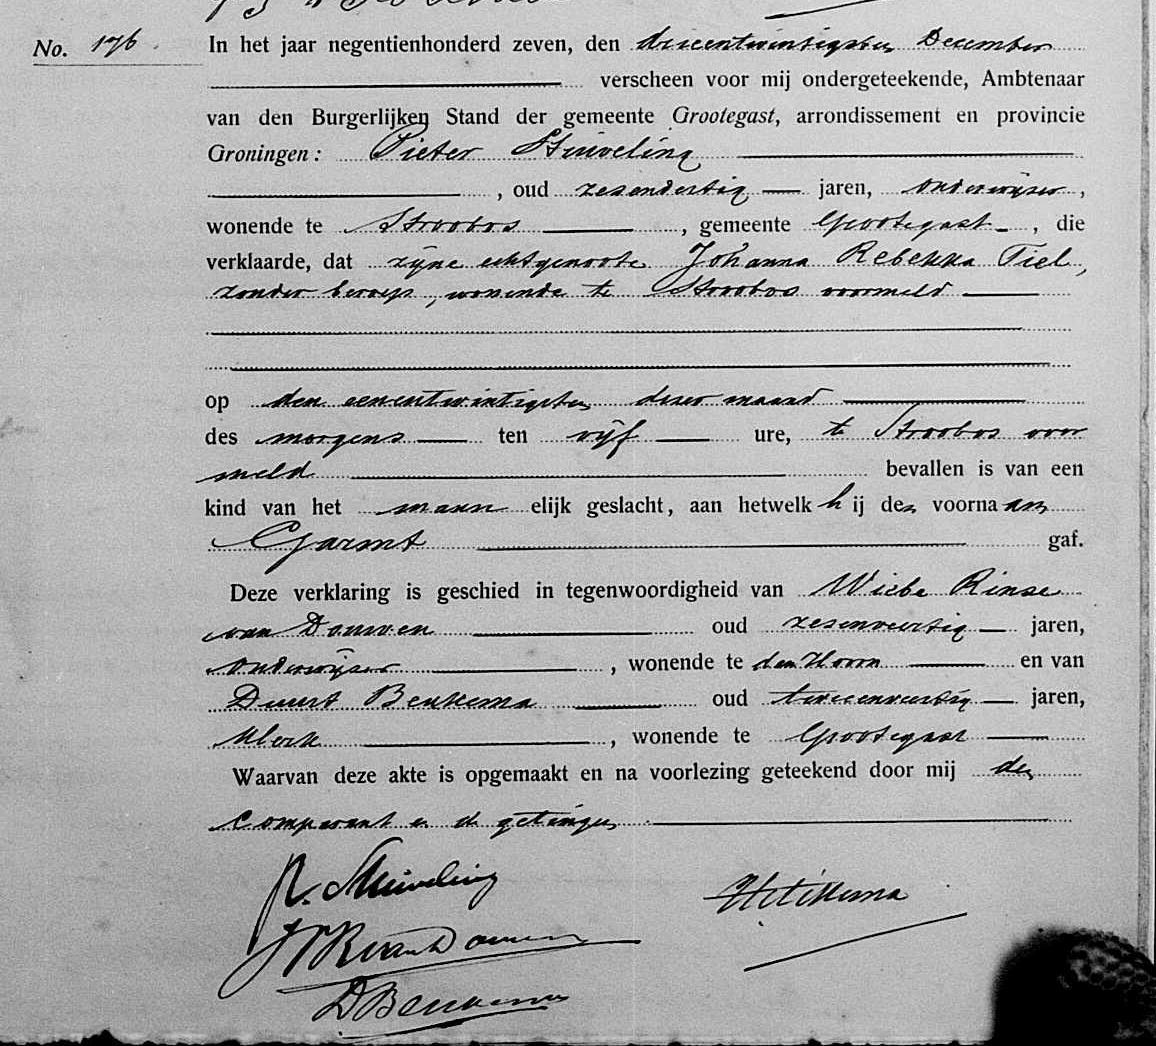 No. 176.
In het jaar negentienhonderd zeven, den drieentwintigsten December
verscheen voor mij ondergeteekende, Ambtenaar
van den Burgerlijken Stand der gemeente Grootegast, arrondissement en provincie
Groningen: Pieter Stuiveling
, oud zesendertig jaren, onderwijzer,
wonende te Stroobos, gemeente Grootegast, die
verklaarde, dat zijne echtgenoote Johanna Rebekka Tiel,
zonder beroep, wonende te Stroobos voormeld
op den eenentwintigsten dezer maand
des morgens ten vijf ure, te Stroobos voor
meld bevallen is van een
kind van het mannelijk geslacht, aan hetwelk hij den voornaam
Garmt gaf.
Deze verklaring is geschied in tegenwoordigheid van Wiebe Rinse
van Douwen oud zesenveertig jaren,
onderwijzer, wonende te den Hoorn en van
Duurt Beukema oud tweeenveertig jaren,
klerk, wonende te Grootegast
Waarvan deze akte is opgemaakt en na voorlezing geteekend door mij den
comparant en de getuigen
P. Stuiveling
WRvanDouwen
DBeukema